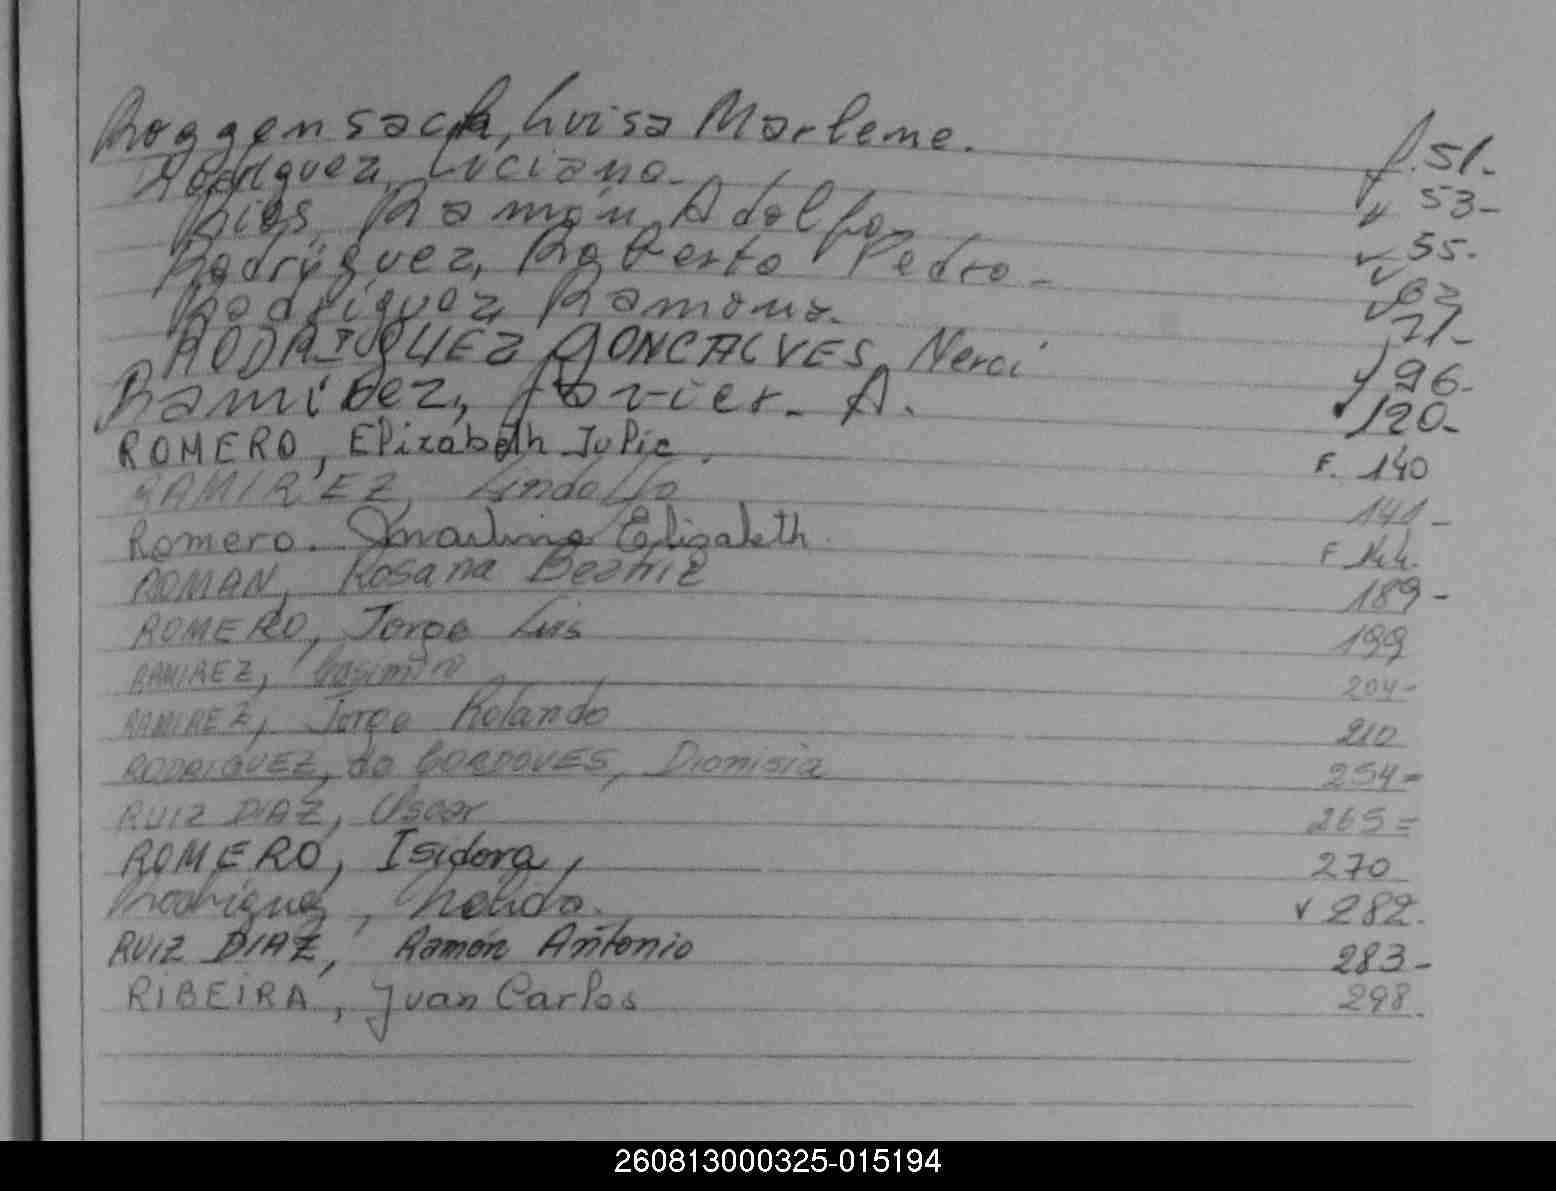 Roggensack, Luisa Marlene. f. 51-
Rodríguez, Luciano. 53-
Rios, Ramón Adolfo. 55.
Rodríguez, Roberto Pedro -
Rodríguez, Ramona. 71-
RODRIGUEZ GONCALVES, Nerci 96-
Ramirez, Javier. A. 120-
ROMERO, Elizabeth Julie. F. 140
RAMIREZ, Lindolfo 141-
Romero. Elizabeth. F 144.
ROMAN, Rosana Beatriz 189-
ROMERO, Jorge Luis 199
RAMIREZ, Casimiro 204-
RAMIREZ, Jorge Rolando 210
RODRIGUEZ, de Dionisia 254=
RUIZ DIAZ, Oscar 265=
ROMERO, Isidora, 270
Rodríguez, Nélida. 282.
RUIZ DIAZ, Ramón Antonio 283-
RIBEIRA, Juan Carlos 298.
260813000325-015194